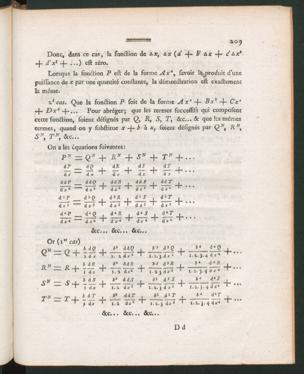 209
Donc, dans ce cas, la fonction de Δx, Δx (d + F Δx + c Δx²
+ d'x³ + ...) est zéro.
Lorsque la fonction P est de la forme Axⁿ, savoir le produit d'une
puissance de x par une quantité constante, la démonstration est exactement
la même.
2ᵉ cas. Que la fonction P soit de la forme Axⁿ + Bxˢ + Cxʳ
+ Dxᵘ + ... Pour abréger; que les termes successifs qui composent
cette fonction, soient désignés par Q, R, S, T, &c... & que les mêmes
termes, quand on y substitue x + b à x, soient désignés par Qᴺ, Rᴺ,
Sᴺ, Tᴺ, &c...
On a les équations suivantes:
Pᴺ = Qᴺ + Rᴺ + Sᴺ + Tᴺ + ...
dP/dx = dQ/dx + dR/dx + dS/dx + dT/dx + ...
ddP/dx² = ddQ/dx² + ddR/dx² + ddS/dx² + ddT/dx² + ...
d³P/dx³ = d³Q/dx³ + d³R/dx³ + d³S/dx³ + d³T/dx³ + ...
d⁴P/dx⁴ = d⁴Q/dx⁴ + d⁴R/dx⁴ + d⁴S/dx⁴ + d⁴T/dx⁴ + ...
&c... &c... &c...
Or (1ᵉʳ cas)
Qᴺ = Q + b dQ/dx + b² ddQ/1.2 dx² + b³ d³Q/1.2.3 dx³ + b⁴ d⁴Q/1.2.3.4 dx⁴ + ...
Rᴺ = R + b dR/dx + b² ddR/1.2 dx² + b³ d³R/1.2.3 dx³ + b⁴ d⁴R/1.2.3.4 dx⁴ + ...
Sᴺ = S + b dS/dx + b² ddS/1.2 dx² + b³ d³S/1.2.3 dx³ + b⁴ d⁴S/1.2.3.4 dx⁴ + ...
Tᴺ = T + b dT/dx + b² ddT/1.2 dx² + b³ d³T/1.2.3 dx³ + b⁴ d⁴T/1.2.3.4 dx⁴ + ...
&c... &c... &c...
D d